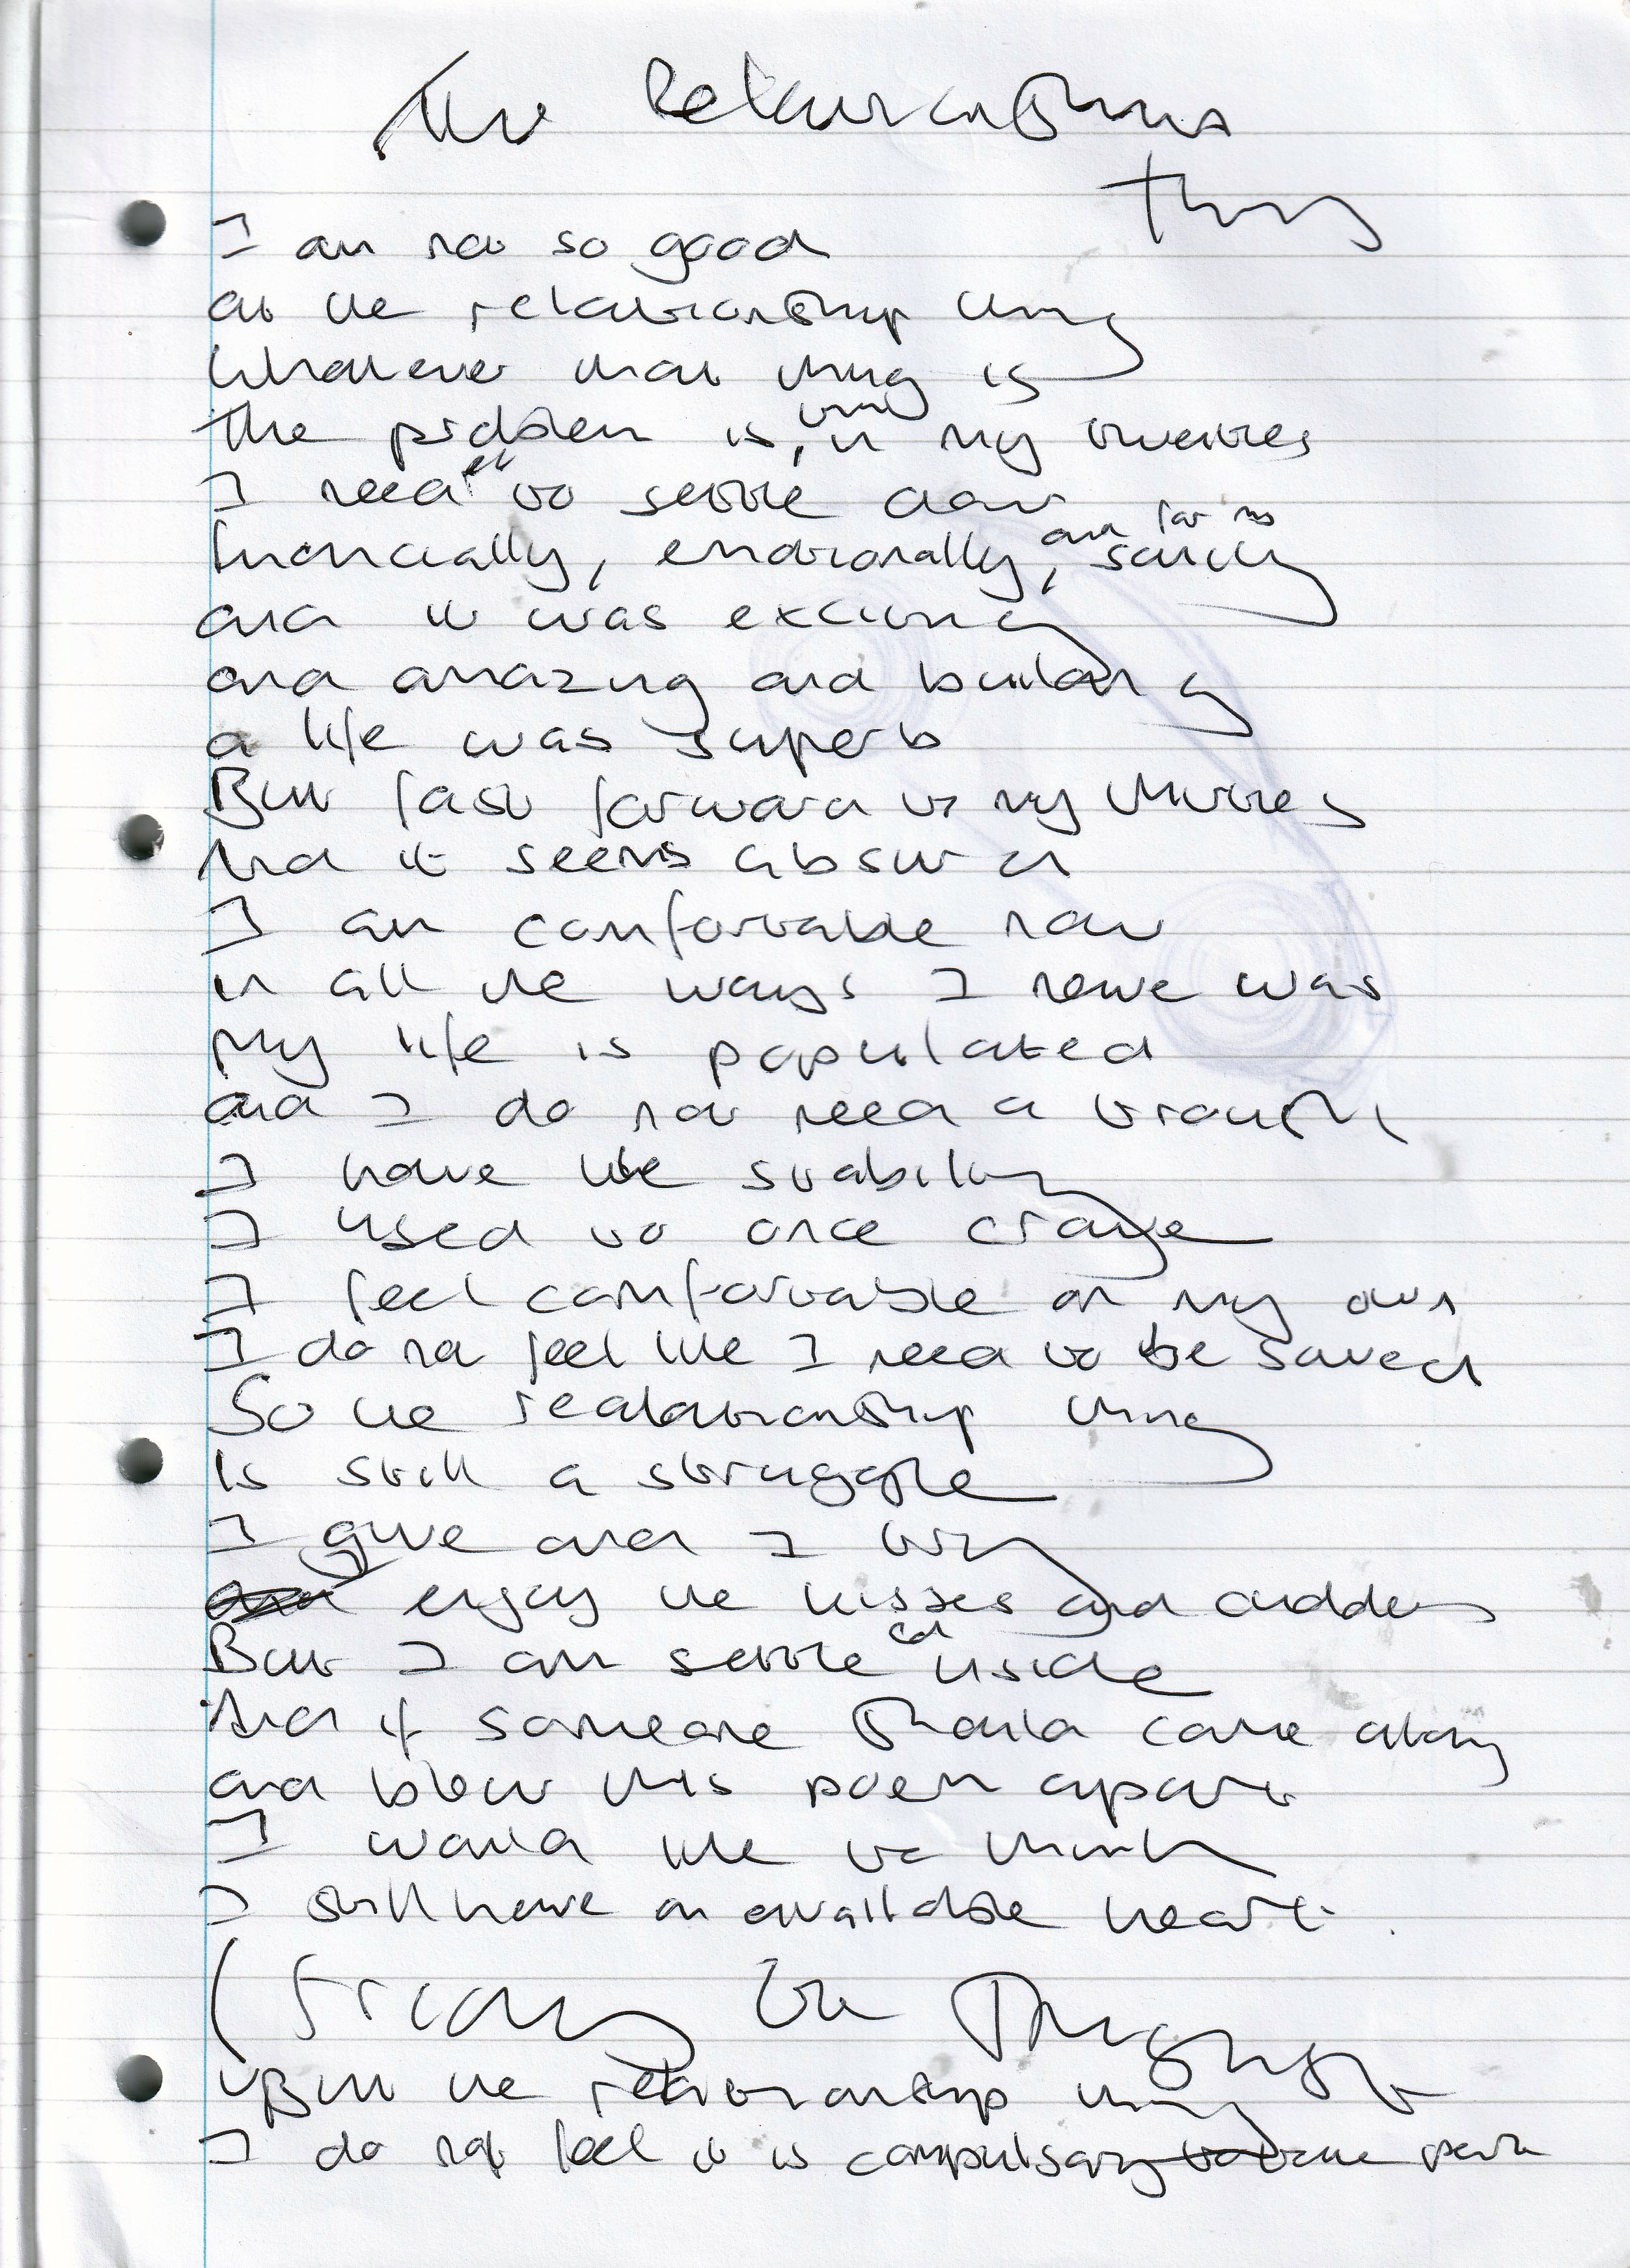 The Relationships
thing
I am not so good
at the relationship thing
Whatever that thing is
The problem is, in my twenties
I needed to settle down
financially, emotionally, and for my sanity
and it was exciting
and amazing and building
a life was superb
But fast forward to my thirties
And it seems absurd
I am comfortable now
in all the ways I never was
My life is populated
and I do not need a
I have the stability
I used to once crave
I feel comfortable on my own
I do not feel like I need to be saved
So the realationship thing
Is still a struggle
I give and I try
and enjoy the kisses and cuddles
But I am settled inside
And if someone should come along
and blew this poem apart
I would like to think
I still have an available heart.
(Friday
But the relationship thing
I do not feel it is compulsary to take part